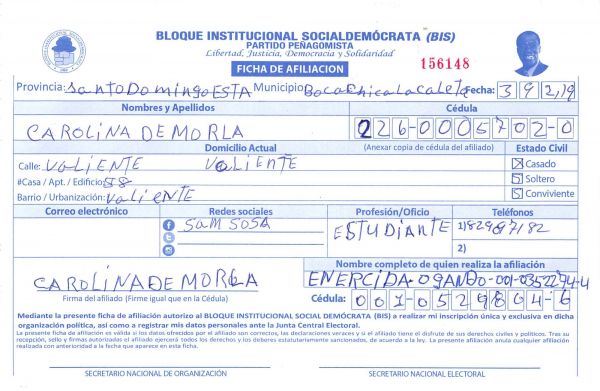 BLOQUE INSTITUCIONAL SOCIALDEMÓCRATA (BIS)
PARTIDO PEÑAGOMISTA
Libertad, Justicia, Democracia y Solidaridad
FICHA DE AFILIACION
156148
Provincia: santo Domingo ESTA Municipio: Boca chica La caleta Fecha: 3 9 2,19
Nombres y Apellidos Cédula
CAROLINA DE MORLA 226-0005702-0
Domicilio Actual (Anexar copia de cédula del afiliado) Estado Civil
Calle: VALIENTE VALIENTE Casado
#Casa / Apt. / Edificio: 58 Soltero
Barrio / Urbanización: VALIENTE Conviviente
Correo electrónico Redes sociales Profesión/Oficio Teléfonos
SAM SOSA ESTUDIANTE 1)
2)
Nombre completo de quien realiza la afiliación
CAROLINA DE MORLA ENERCIDA OGANDO
Firma del afiliado (Firme igual que en la Cédula) Cédula: 001-0529804-6
Mediante la presente ficha de afiliación autorizo al BLOQUE INSTITUCIONAL SOCIAL DEMÓCRATA (BIS) a realizar mi inscripción única y exclusiva en dicha
organización política, así como a registrar mis datos personales ante la Junta Central Electoral.
La presente ficha de afiliación es válida si los datos ofrecidos por el afiliado son correctos, las declaraciones veraces y si el afiliado tiene el disfrute de sus derechos civiles y políticos. Tras su
recepción, sello y firmas autorizadas el afiliado ejercerá todos los derechos y los deberes estatutariamente sancionados, de acuerdo a la ley. La presente afiliación anula cualquier afiliación
realizada con anterioridad a la fecha que aparece en esta ficha.
SECRETARIO NACIONAL DE ORGANIZACIÓN SECRETARIO NACIONAL ELECTORAL